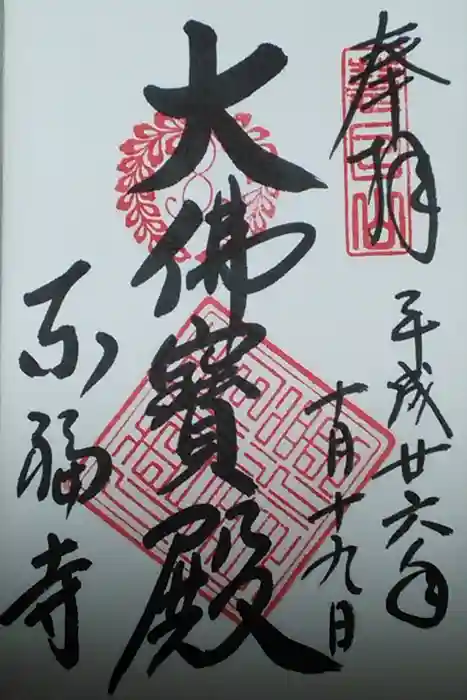 奉拝
平成廿六年
十月十九日
大佛寳殿
東福寺